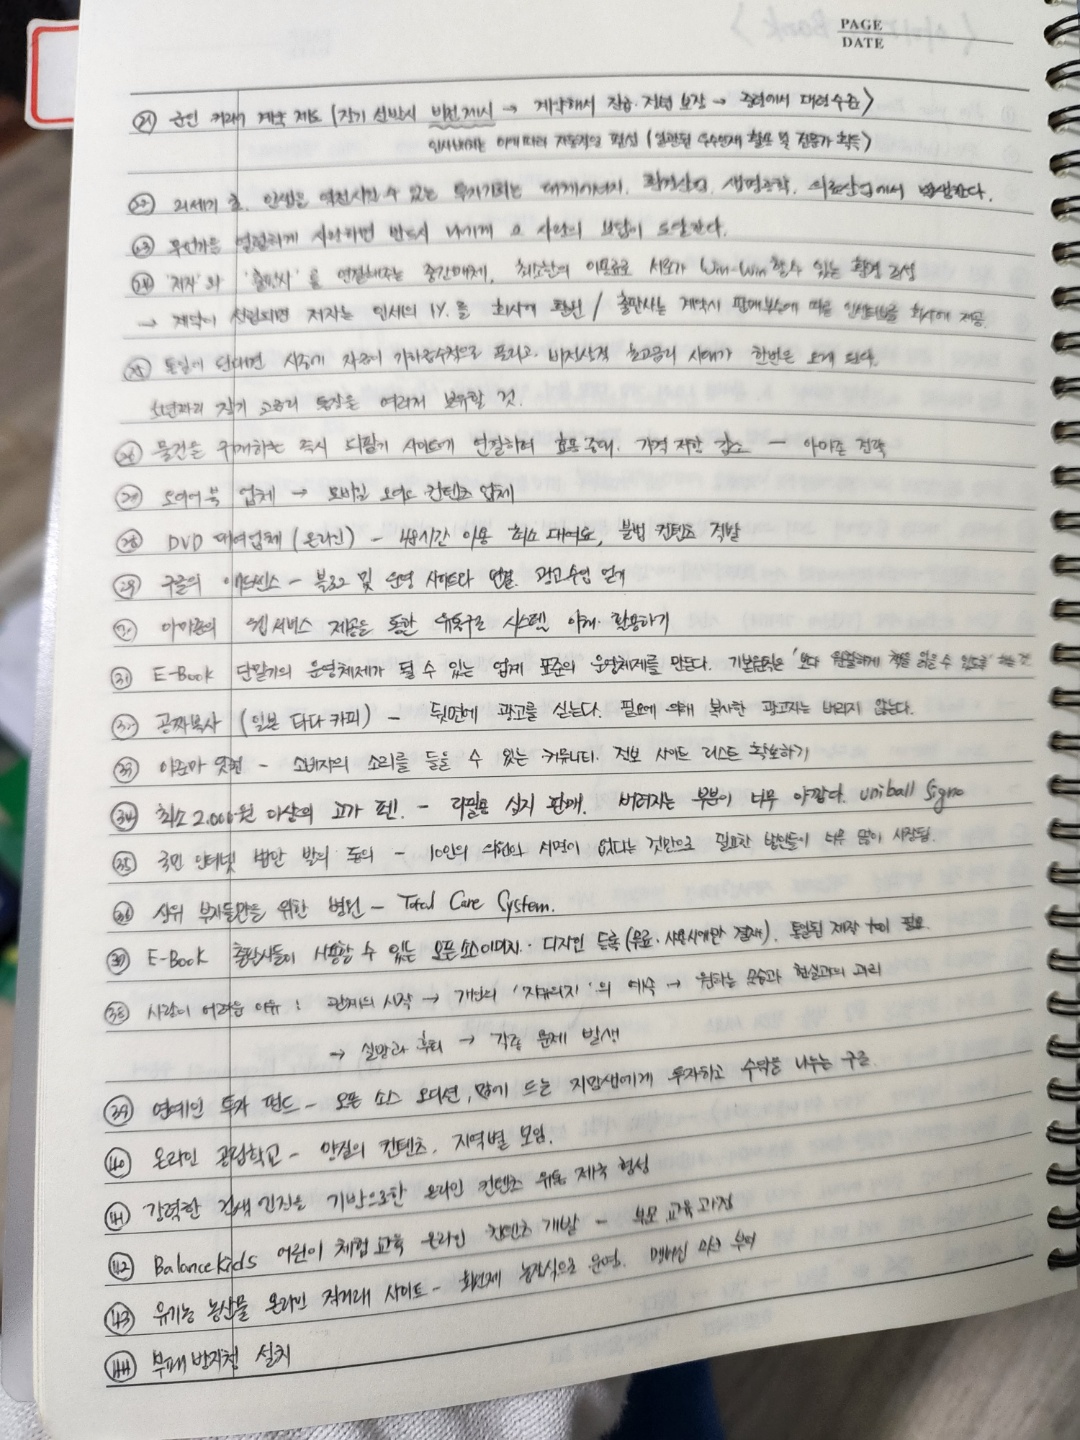 PAGE
DATE
㉑ 군인 커리어 계약 제도 (장기 선발시 비전제시 → 계약해서 진급·정년 보장 →
22 21세기 초, 인생을 역전시킬 수 있는 투자기회는 대체에너지, 환경산업, 생명공학, 의료산업에서 발생한다.
23 무언가를 열렬하게 시작하면 반드시 나에게 그 보답이 도달한다.
24 '저자'와 '출판사'를 연결해주는 중간매체, 최소한의 서로가 Win-Win 할 수 있는 환경
→ 계약이 성립되면 저자는 인세의 1%를 회사에 환원 / 출판사는 계약시 판매부수에 따른 회사에 제공
25 통일이 된다면 시중에 자금이 기하급수적으로 풀리고 비정상적 초고금리 시대가 한번은 오게 된다.
5년짜리 장기 고금리 통장을 여러개 보유할 것.
26 물건을 구매하는 즉시 되팔기 사이트에 연결하여 효용 증대, 가격 저항 감소 — 아마존 전략
27 오디오북 업체 → 모바일 오디오 컨텐츠 업체
28 DVD 대여업체 (온라인) - 48시간 이용 최소 대여료, 불법 컨텐츠 적발
29 구글의 애드센스 - 블로그 및 운영 사이트와 연결 광고수입 얻기
30 아마존의 웹서비스 제공을 통한 유통구조 시스템 이해·활용하기
31 E-Book 단말기의 운영체제가 될 수 있는 업계 표준의 운영체제를 만든다. 기본원칙은 '보다 원활하게 책을 읽을 수 있도록' 하는 것
32 공짜복사 (일본 타다카피) - 뒷면에 광고를 싣는다. 필요에 의해 복사한 광고지는 버리지 않는다.
33 아줌마 닷컴 - 소비자의 소리를 들을 수 있는 커뮤니티. 정보 사이트 리스트 확보하기
34 최소 2,000원 이상의 고가 펜. - 리필용 심지 판매. 버려지는 부분이 너무 아깝다. uniball Signo
35 국민 인터넷 법안 발의 동의 - 10인의 의원의 서명이 없다는 것만으로 필요한 법안들이 너무 많이 사장됨.
36 상위 부자들만을 위한 병원 - Total Care System.
37 E-Book 출판사들이 사용할 수 있는 오픈 소스 이미지·디자인 등록 (무료·사용시에만 결제). 통일된 제작 tool 필요.
38 사랑이 어려운 이유 : 관계의 시작 → 개인의 '자유의지'의 예속 → 원하는 모습과 현실과의 괴리
→ 실망과 후회 → 각종 문제 발생
39 연예인 투자 펀드 - 오픈 소스 오디션, 맘에 드는 지망생에게 투자하고 수익을 나누는 구조.
40 온라인 공립학교 - 양질의 컨텐츠, 지역별 모임.
41 강력한 검색 엔진을 기반으로한 온라인 컨텐츠 유통 제국 형성
42 BalanceKids 어린이 체험교육 온라인 컨텐츠 개발 - 부모 교육과정
43 유기농 농산물 온라인 직거래 사이트 - 회원제 방식으로 운영. 멤버십 카드 부여
44 부패방지청 설치